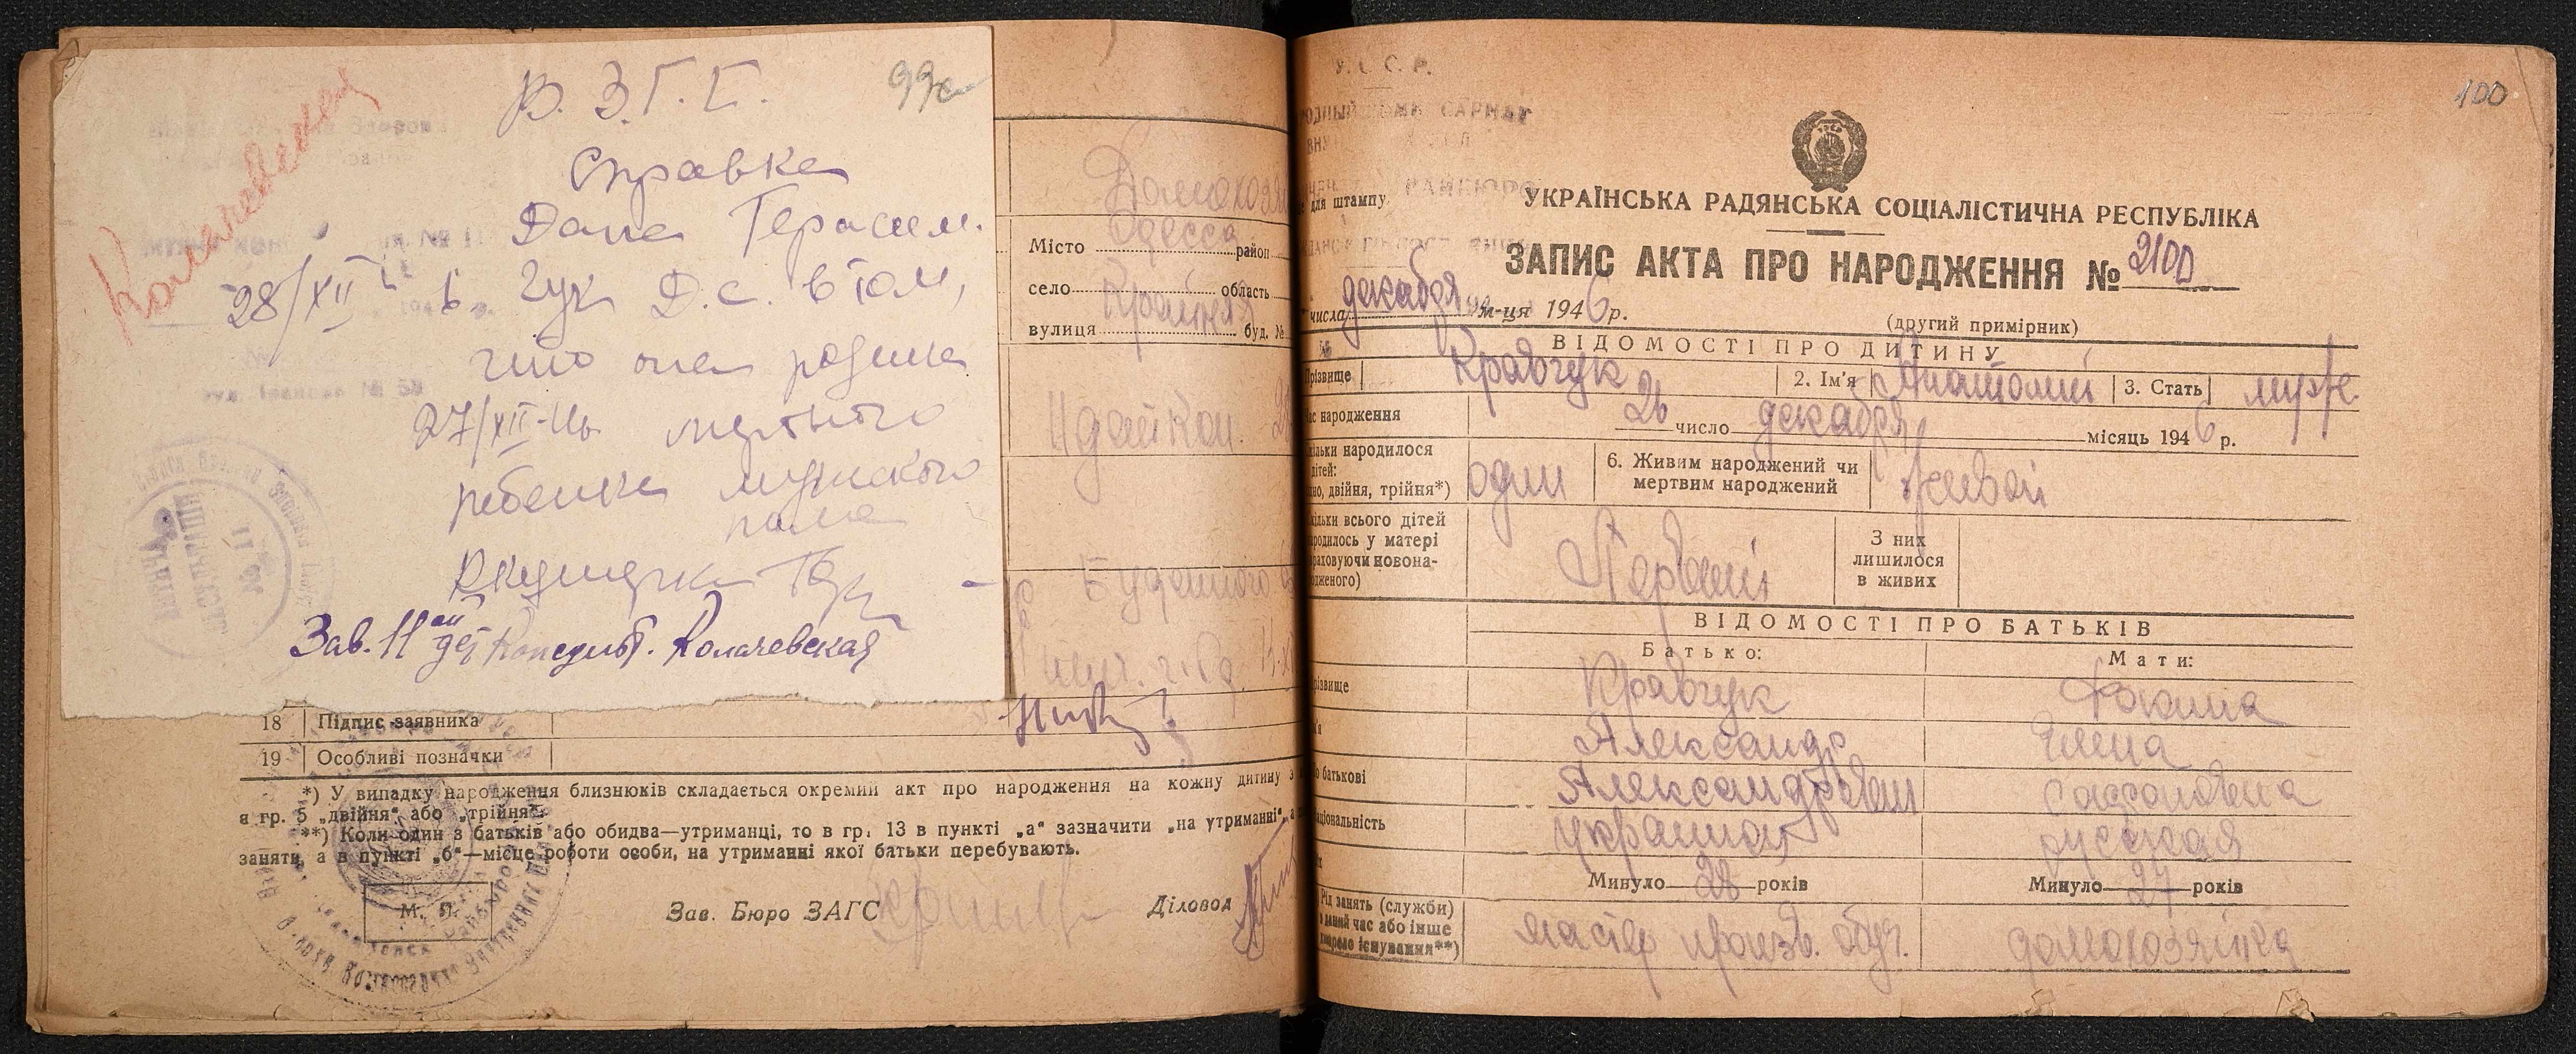 99с
В. З.Г.С.
Справка
Дана Герасим.
28/XII 46. Гук Д.С. в том,
что она родила
27/XII-46 мертвого
ребенка мужского
пола
Акушерка
Зав. 11ой дет Консульт. Колачевская
Домохозя
Місто Одесса район
село область
вулиця Крайняя буд. №
11 дет Кон.
Буденного
18 Підпис заявника
19 Особливі позначки
*) У випадку народження близнюків складається окремий акт про народження на кожну дитину з
в гр. 5 „двійня“ або „трійня“.
**) Коли один з батьків або обидва—утриманці, то в гр. 13 в пункті „а“ зазначити „на утриманні“, а
заняти, а в пункті „б“—місце роботи особи, на утриманні якої батьки перебувають.
М. П.
Зав. Бюро ЗАГС
Діловод
100
У. С. С. Р.
для штампу
УКРАЇНСЬКА РАДЯНСЬКА СОЦІАЛІСТИЧНА РЕСПУБЛІКА
ЗАПИС АКТА ПРО НАРОДЖЕННЯ № 2100
числа декабря м-ця 1946 р.
(другий примірник)
ВІДОМОСТІ ПРО ДИТИНУ
різвище Кравчук 2. Ім'я Анатолий 3. Стать муж.
ас народження 26 число декабря місяць 1946 р.
ільки народилося
дітей:
но, двійня, трійня*) один 6. Живим народжений чи
мертвим народжений Живой
ільки всього дітей
родилось у матері
раховуючи новона-
одженого) Первый З них
лишилося
в живих
ВІДОМОСТІ ПРО БАТЬКІВ
Батько: Мати:
різвище Кравчук Фокина
м'я Александр Елена
о батькові Александрович Сафоновна
аціональність украинец русская
Минуло 28 років Минуло 27 років
Рід занять (служби)
в даний час або інше
джерело існування**) мастер произв. обуч. домохозяйка